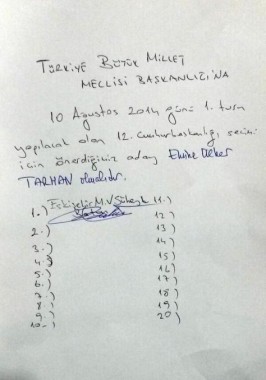 TÜRKİYE BÜYÜK MİLLET
MECLİSİ BAŞKANLIĞI'NA
10 Ağustos 2014 günü 1. turu
yapılacak olan 12. cumhurbaşkanlığı seçimi
için önerdiğimiz aday Emine Ülker
TARHAN olmalıdır.
1.) Eskişehir M.V. 11.)
2.) 12)
3.) 13)
4.) 14)
5.) 15)
6.) 16)
7.) 17)
8.) 18)
9.) 19)
10.) 20)